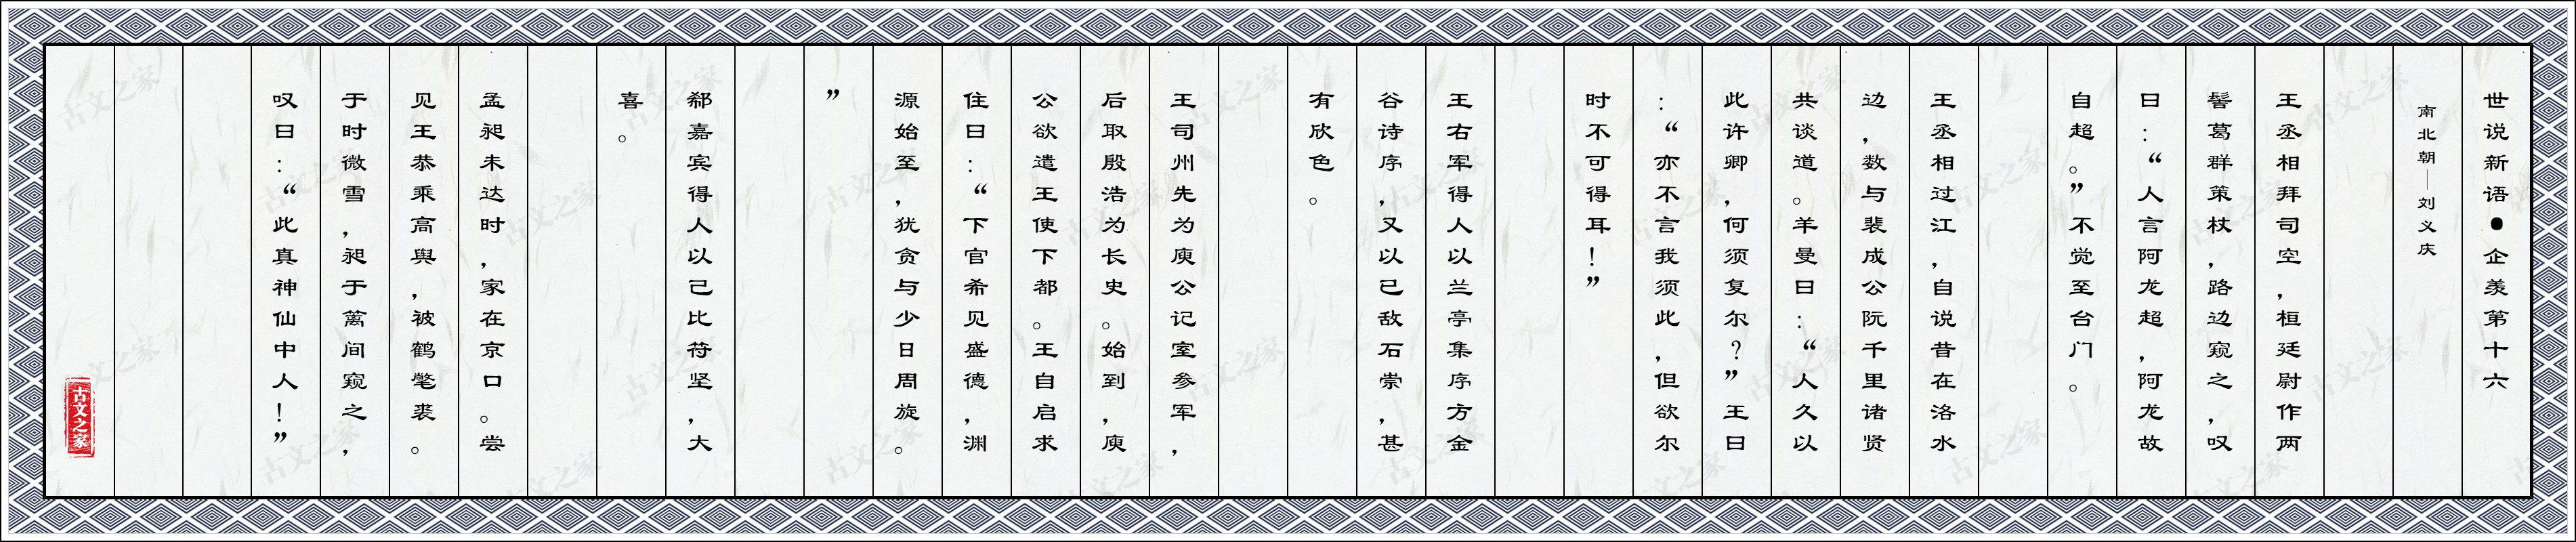 世说新语●企羡第十六
南北朝—刘义庆
王丞相拜司空，桓廷尉作两
髻葛群策杖，路边窥之，叹
曰：“人言阿龙超，阿龙故
自超。”不觉至台门。
王丞相过江，自说昔在洛水
边，数与裴成公阮千里诸贤
共谈道。羊曼曰：“人久以
此许卿，何须复尔？”王曰
：“亦不言我须此，但欲尔
时不可得耳！”
王右军得人以兰亭集序方金
谷诗序，又以己敌石崇，甚
有欣色。
王司州先为庾公记室参军，
后取殷浩为长史。始到，庾
公欲遣王使下都。王自启求
住曰：“下官希见盛德，渊
源始至，犹贪与少日周旋。
”
郗嘉宾得人以己比符坚，大
喜。
孟昶未达时，家在京口。尝
见王恭乘高舆，被鹤氅裘。
于时微雪，昶于篱间窥之，
叹曰：“此真神仙中人！”
古文之家